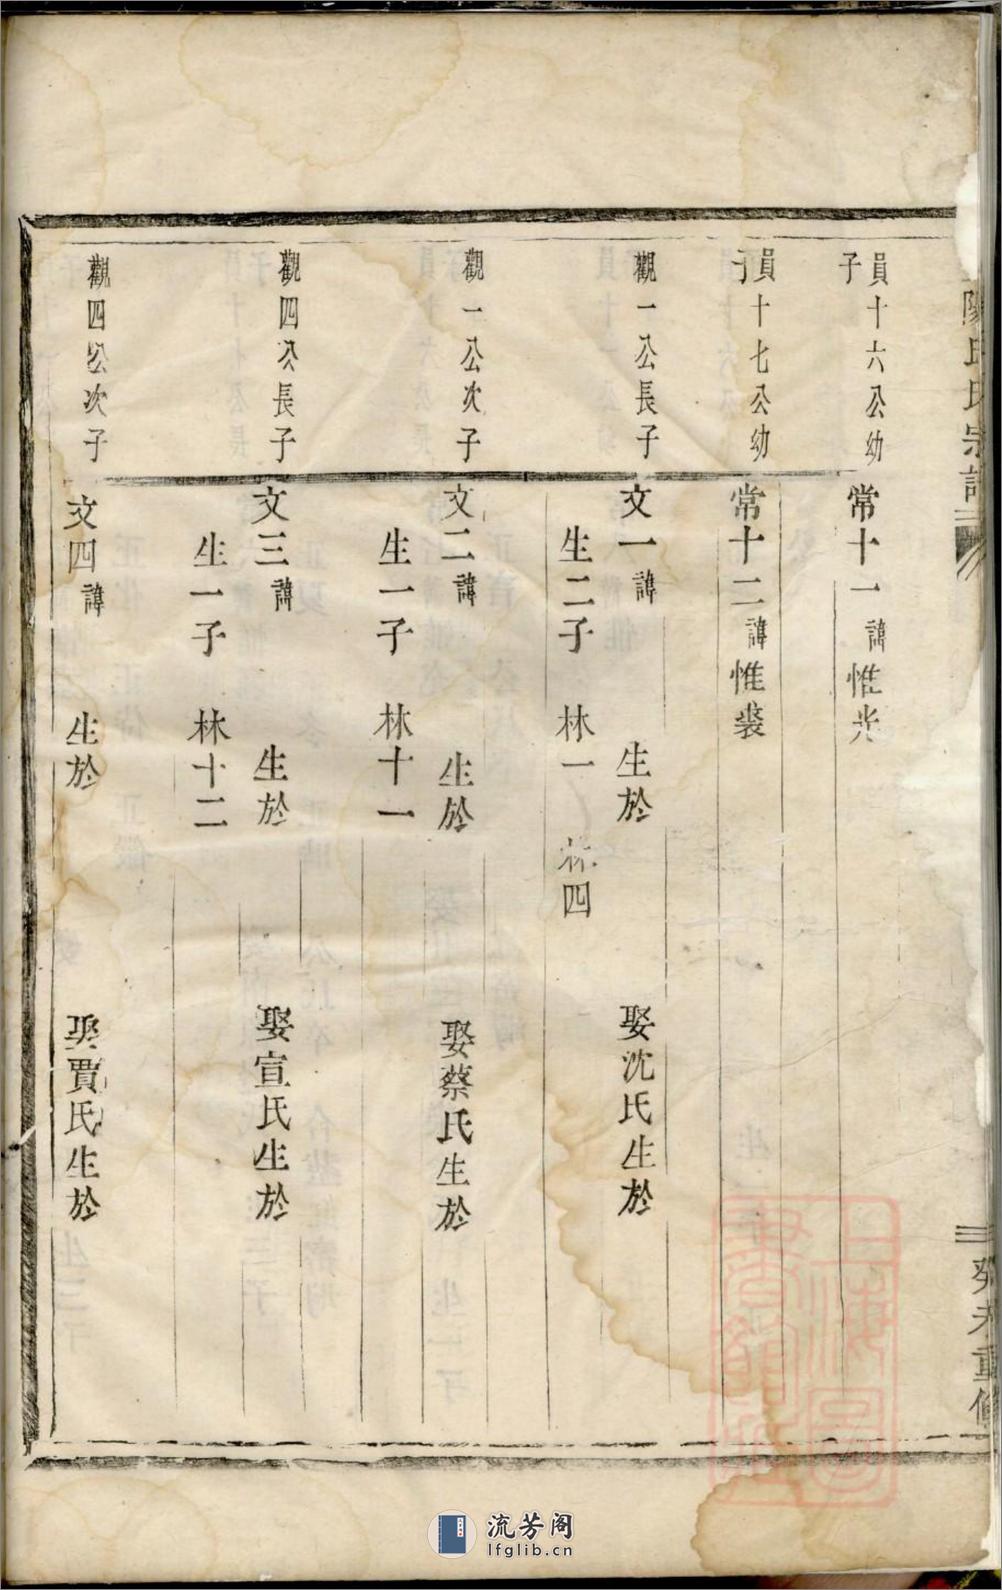 氏宗譜
癸未重修
員十六公幼
子
常十一諱惟光
員十七公幼
子
常十二諱惟裘
觀一公長子
文一諱 生於 娶沈氏生於
生二子 林一 林四
觀一公次子
文二諱 生於 娶蔡氏生於
生一子 林十一
觀四公長子
文三諱 生於 娶宣氏生於
生一子 林十二
觀四公次子
文四諱 生於 娶賈氏生於
上海圖書館藏
流芳阁
lfglib.cn